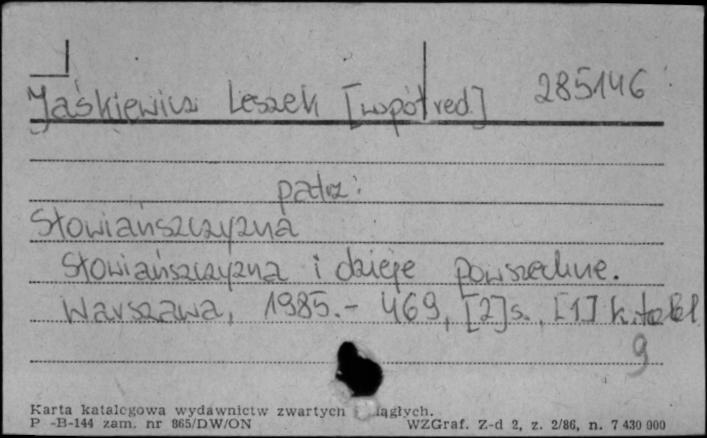 Jaśkiewicz Leszek [współred.] 285146
patrz:
Słowiańszczyzna
Słowiańszczyzna i dzieje powszechne.
Warszawa, 1985.- 469, [2]s., [1] k. tabl
9
Karta katalogowa wydawnictw zwartych ciągłych.
P -B-144 zam. nr 865/DW/ON WZGraf. Z-d 2, z. 2/86, n. 7 430 000